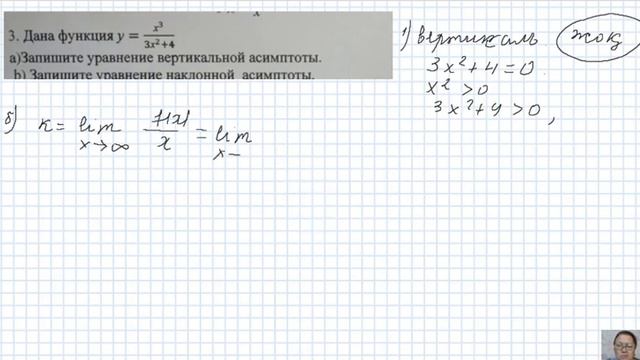 3. Дана функция y = x³/(3x²+4)
a)Запишите уравнение вертикальной асимптоты.
b) Запишите уравнение наклонной асимптоты.
1) вертикаль жоқ
3x²+4=0
x²>0
3x²+4>0,
б) k = lim x→∞ f(x)/x = lim x–